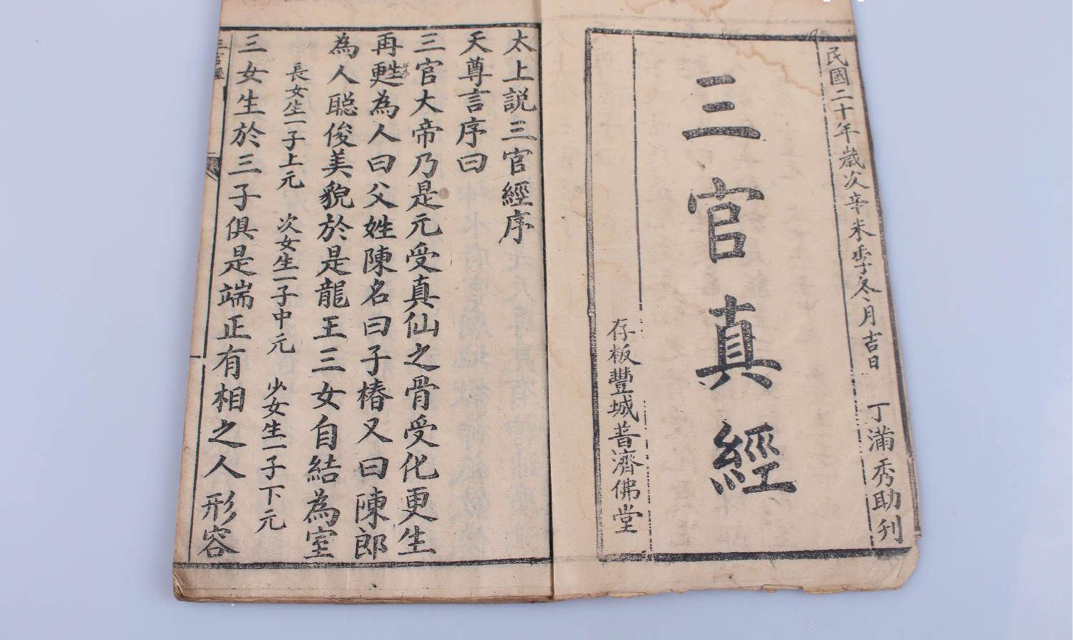 民國二十年歲次辛未季冬月吉日 丁滿秀助刋
三官真經
存板豐城普濟佛堂
太上説三官經序
天尊言序曰
三官大帝乃是元受真仙之骨受化更生
再甦為人曰父姓陳名曰子椿又曰陳郎
為人聡俊美貌於是龍王三女自結為室
長女生一子上元 次女生一子中元 少女生一子下元
三女生於三子俱是端正有相之人形容
三官經